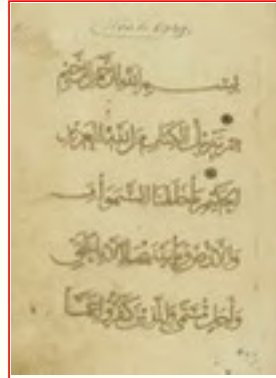 بسم الله الرحمن الرحيم
حم تنزيل الكتاب من الله العزيز
الحكيم ما خلقنا السموات
والارض وما بينهما الا بالحق
واجل مسمى والذين كفروا عما